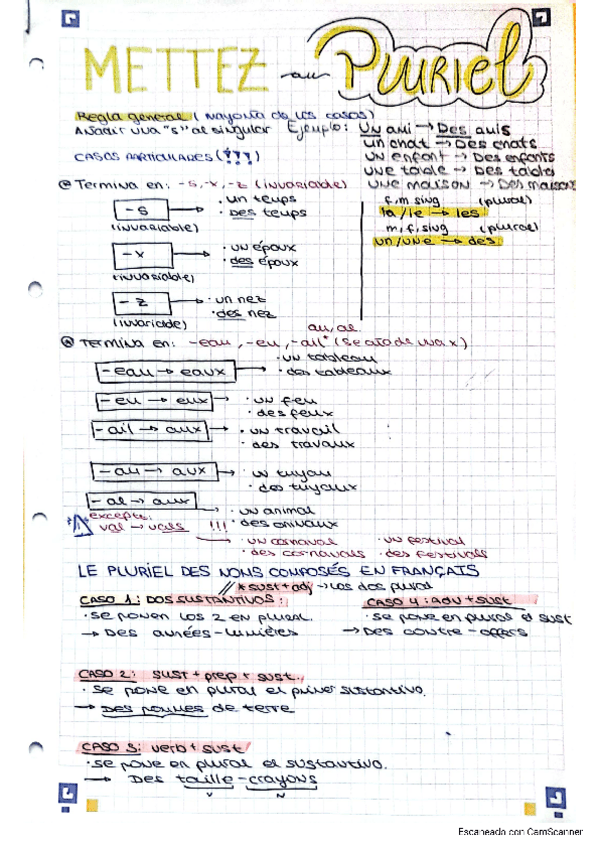 METTEZ au Pluriel
Regla general (mayoría de los casos)
Añadir una "s" al singular Ejemplo: Un ami → Des amis
un chat → Des chats
CASOS PARTICULARES (???) un enfant → Des enfants
une table → Des tables
@ Termina en: -s, -x, -z (invariable) une maison → Des maisons
-s
(invariable)
· un temps
· des temps
f, m sing (plural)
la/le → les
m, f, sing (plural)
un/une → des
-x
(invariable)
· un époux
· des époux
-z
(invariable)
· un nez
· des nez
au, al
@ Termina en: -eau, -eu, -ail* (se añade una x)
-eau → eaux
· un tableau
· des tableaux
-eu → eux
· un feu
· des feux
-ail → aux
· un travail
· des travaux
-au → aux
· un tuyau
· des tuyaux
-al → aux
· un animal
· des animaux
excepte:
val → vals !!!
· un carnaval · un festival
· des carnavals · des festivals
LE PLURIEL DES NOMS COMPOSÉS EN FRANÇAIS
* sust + adj → los dos plural
CASO 1: DOS SUSTANTIVOS:
· se ponen los 2 en plural.
→ Des années-lumières
CASO 4: ADV + sust
· se pone en plural el sust
→ Des contre-offers
CASO 2: SUST + prep + sust.
· se pone en plural el primer sustantivo.
→ Des pommes de terre
CASO 3: verb + sust
· se pone en plural el sustantivo.
→ Des taille-crayons
V N
Escaneado con CamScanner